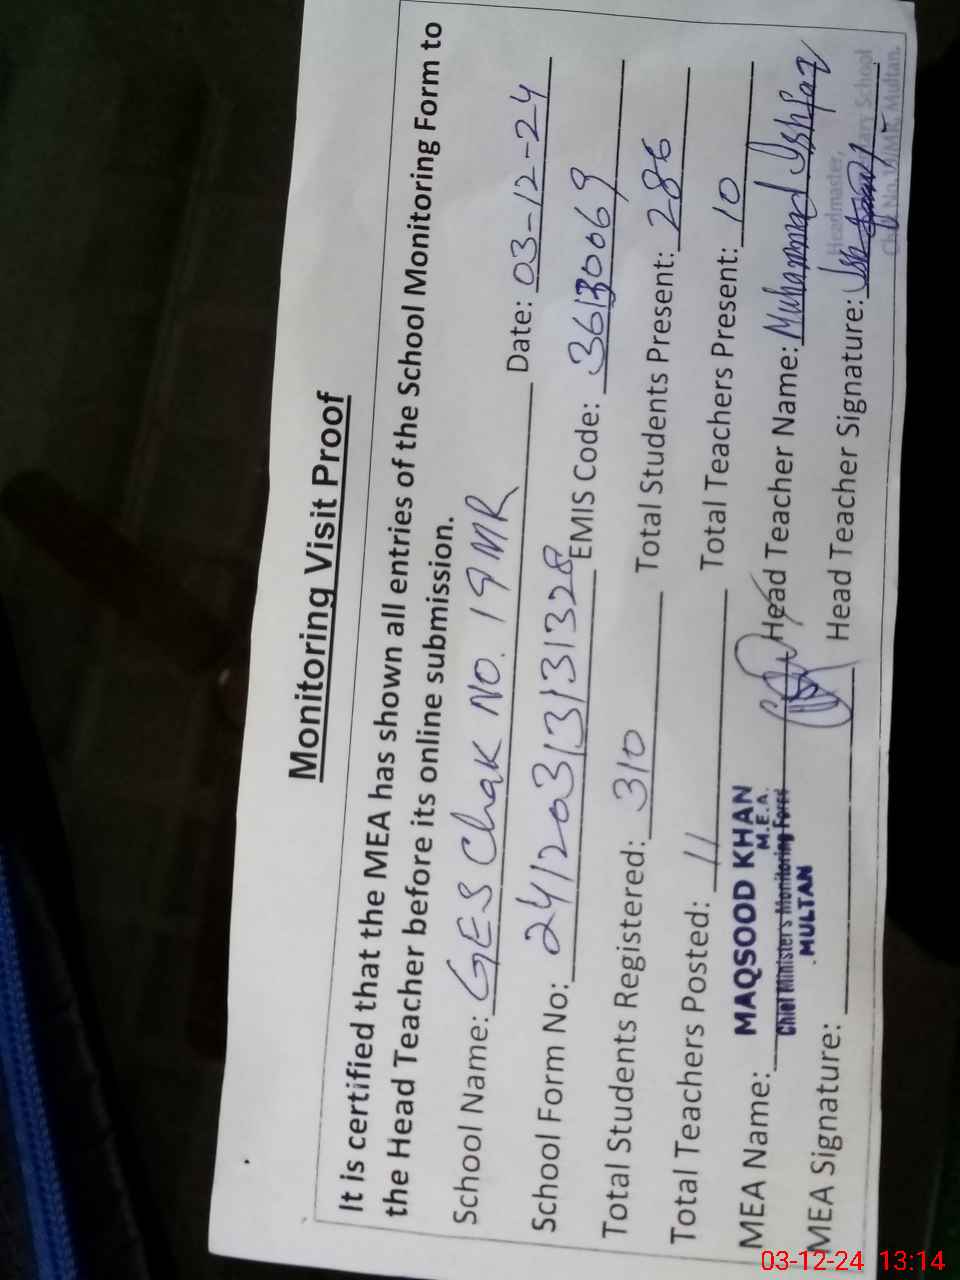 Monitoring Visit Proof
It is certified that the MEA has shown all entries of the School Monitoring Form to
the Head Teacher before its online submission.
School Name: GES Chak No. 19 MR Date: 03-12-24
School Form No: 24120313131328 EMIS Code: 36130069
Total Students Registered: 310 Total Students Present: 286
Total Teachers Posted: 11 Total Teachers Present: 10
MEA Name: MAQSOOD KHAN Head Teacher Name: Muhammad Ishfaq
M.E.A.
Chief Minister's Monitoring Force
MULTAN
Headmaster,
School
MEA Signature: Head Teacher Signature:
Chak No. MR Multan.
03-12-24 13:14